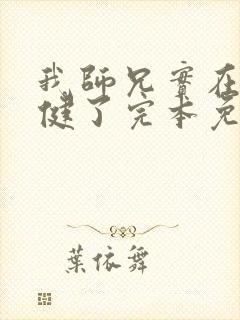 我師兄實在
健了完本免
葉依舞